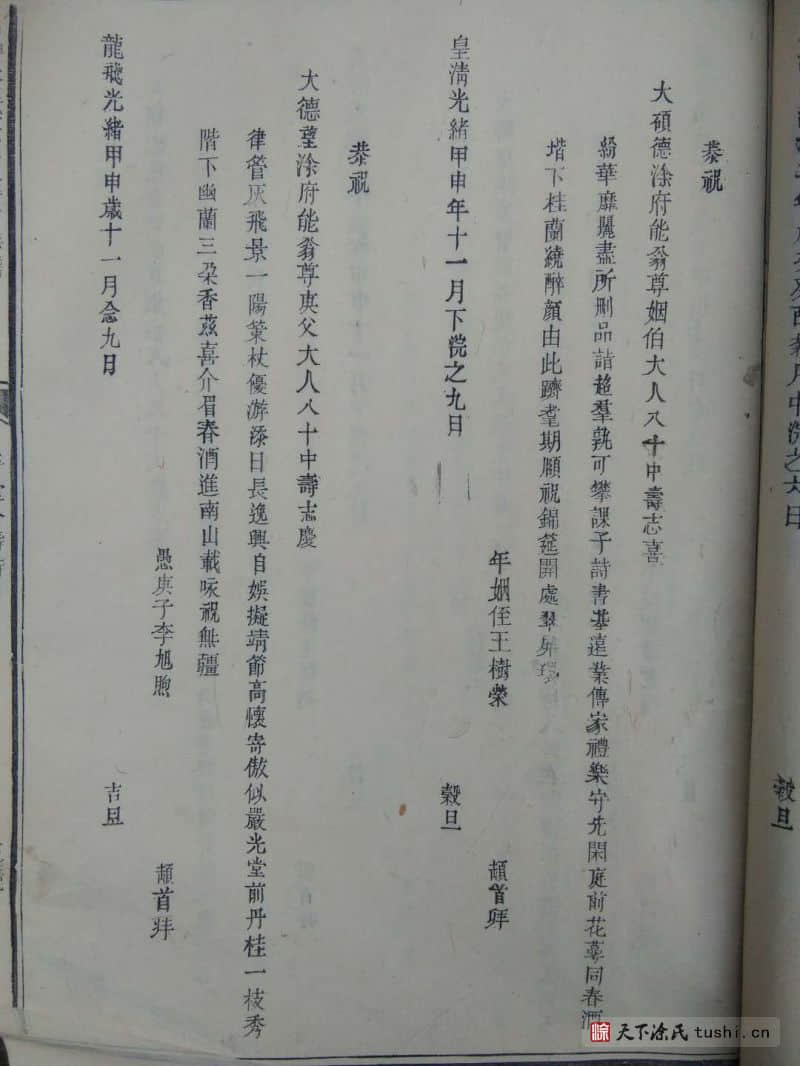 恭祝
大碩德涂府能翁尊姻伯大人八十中壽志喜
紛華靡麗盡所刪品詣超羣孰可攀課子詩書基遠業傳家禮樂守先閑庭前花萼同春酒
堦下桂蘭繞醉顏由此躋耄期願祝錦筵開處翠屏環
年姻侄王樹榮 頓首拜
皇淸光緒甲申年十一月下浣之九日 穀旦
恭祝
大德望涂府能翁尊庚父大人八十中壽志慶
律管灰飛景一陽策杖優游添日長逸興自娛擬靖節高懷寄傲似嚴光堂前丹桂一枝秀
階下幽蘭三朶香茲喜介眉春酒進南山載咏祝無疆
愚庚子李旭煦 頓首拜
龍飛光緒甲申歲十一月念九日 吉旦
穀旦
天下涂氏 tushi.cn